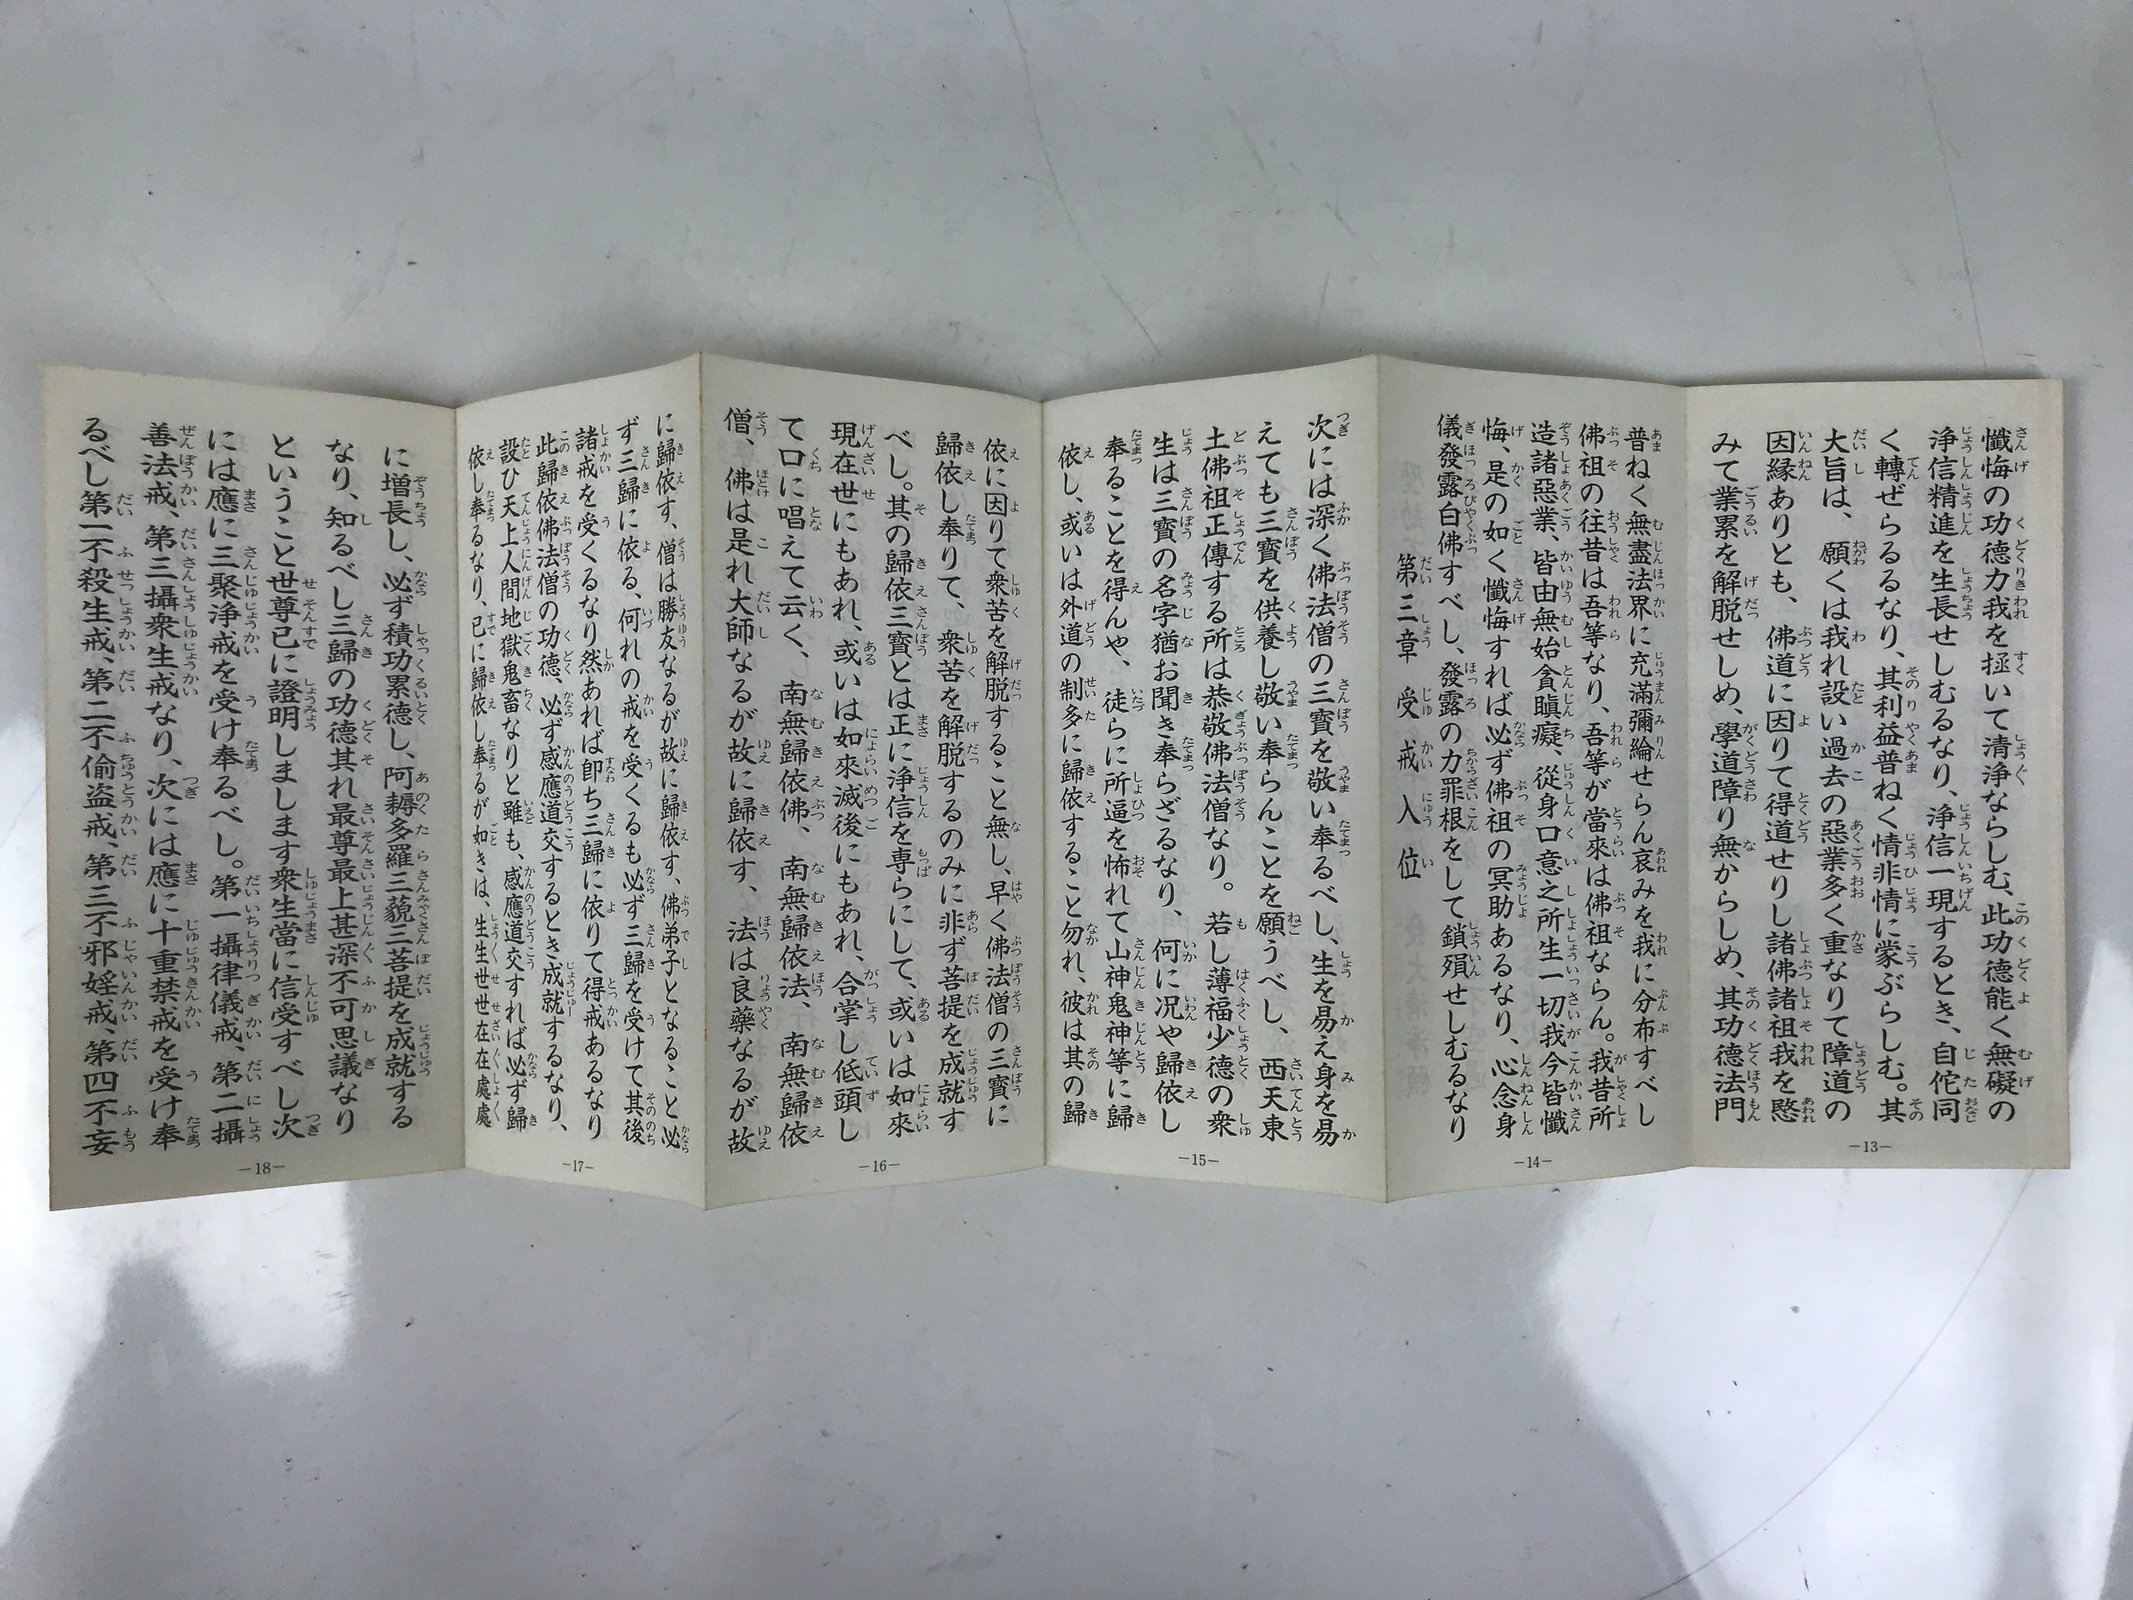 懺悔の功德力我を拯いて清浄ならしむ、此功德能く無礙の
浄信精進を生長せしむるなり、浄信一現するとき、自佗同
く轉ぜらるるなり、其利益普ねく情非情に蒙ぶらしむ。其
大旨は、願くは我れ設い過去の惡業多く重なりて障道の
因縁ありとも、佛道に因りて得道せりし諸佛諸祖我を愍
みて業累を解脱せしめ、學道障り無からしめ、其功德法門
－13－
普ねく無盡法界に充滿彌綸せらん哀みを我に分布すべし
佛祖の往昔は吾等なり、吾等が當來は佛祖ならん。我昔所
造諸惡業、皆由無始貪瞋癡、從身口意之所生一切我今皆懺
悔、是の如く懺悔すれば必ず佛祖の冥助あるなり、心念身
儀發露白佛すべし、發露の力罪根をして銷殞せしむるなり
第三章　受戒入位
－14－
次には深く佛法僧の三寶を敬い奉るべし、生を易え身を易
えても三寶を供養し敬い奉らんことを願うべし、西天東
土佛祖正傳する所は恭敬佛法僧なり。若し薄福少德の衆
生は三寶の名字猶お聞き奉らざるなり、何に况や歸依し
奉ることを得んや、徒らに所逼を怖れて山神鬼神等に歸
依し、或いは外道の制多に歸依すること勿れ、彼は其の歸
－15－
依に因りて衆苦を解脱すること無し、早く佛法僧の三寶に
歸依し奉りて、衆苦を解脱するのみに非ず菩提を成就す
べし。其の歸依三寶とは正に浄信を専らにして、或いは如來
現在世にもあれ、或いは如來滅後にもあれ、合掌し低頭し
て口に唱えて云く、南無歸依佛、南無歸依法、南無歸依
僧、佛は是れ大師なるが故に歸依す、法は良藥なるが故
－16－
に歸依す、僧は勝友なるが故に歸依す、佛弟子となること必
ず三歸に依る、何れの戒を受くるも必ず三歸を受けて其後
諸戒を受くるなり然あれば卽ち三歸に依りて得戒あるなり
此歸依佛法僧の功德、必ず感應道交するとき成就するなり、
設ひ天上人間地獄鬼畜なりと雖も、感應道交すれば必ず歸
依し奉るなり、已に歸依し奉るが如きは、生生世世在在處處
－17－
に增長し、必ず積功累德し、阿耨多羅三藐三菩提を成就する
なり、知るべし三歸の功德其れ最尊最上甚深不可思議なり
ということ世尊已に證明しまします衆生當に信受すべし次
には應に三聚浄戒を受け奉るべし。第一攝律儀戒、第二攝
善法戒、第三攝衆生戒なり、次には應に十重禁戒を受け奉
るべし第一不殺生戒、第二不偷盗戒、第三不邪婬戒、第四不妄
－18－